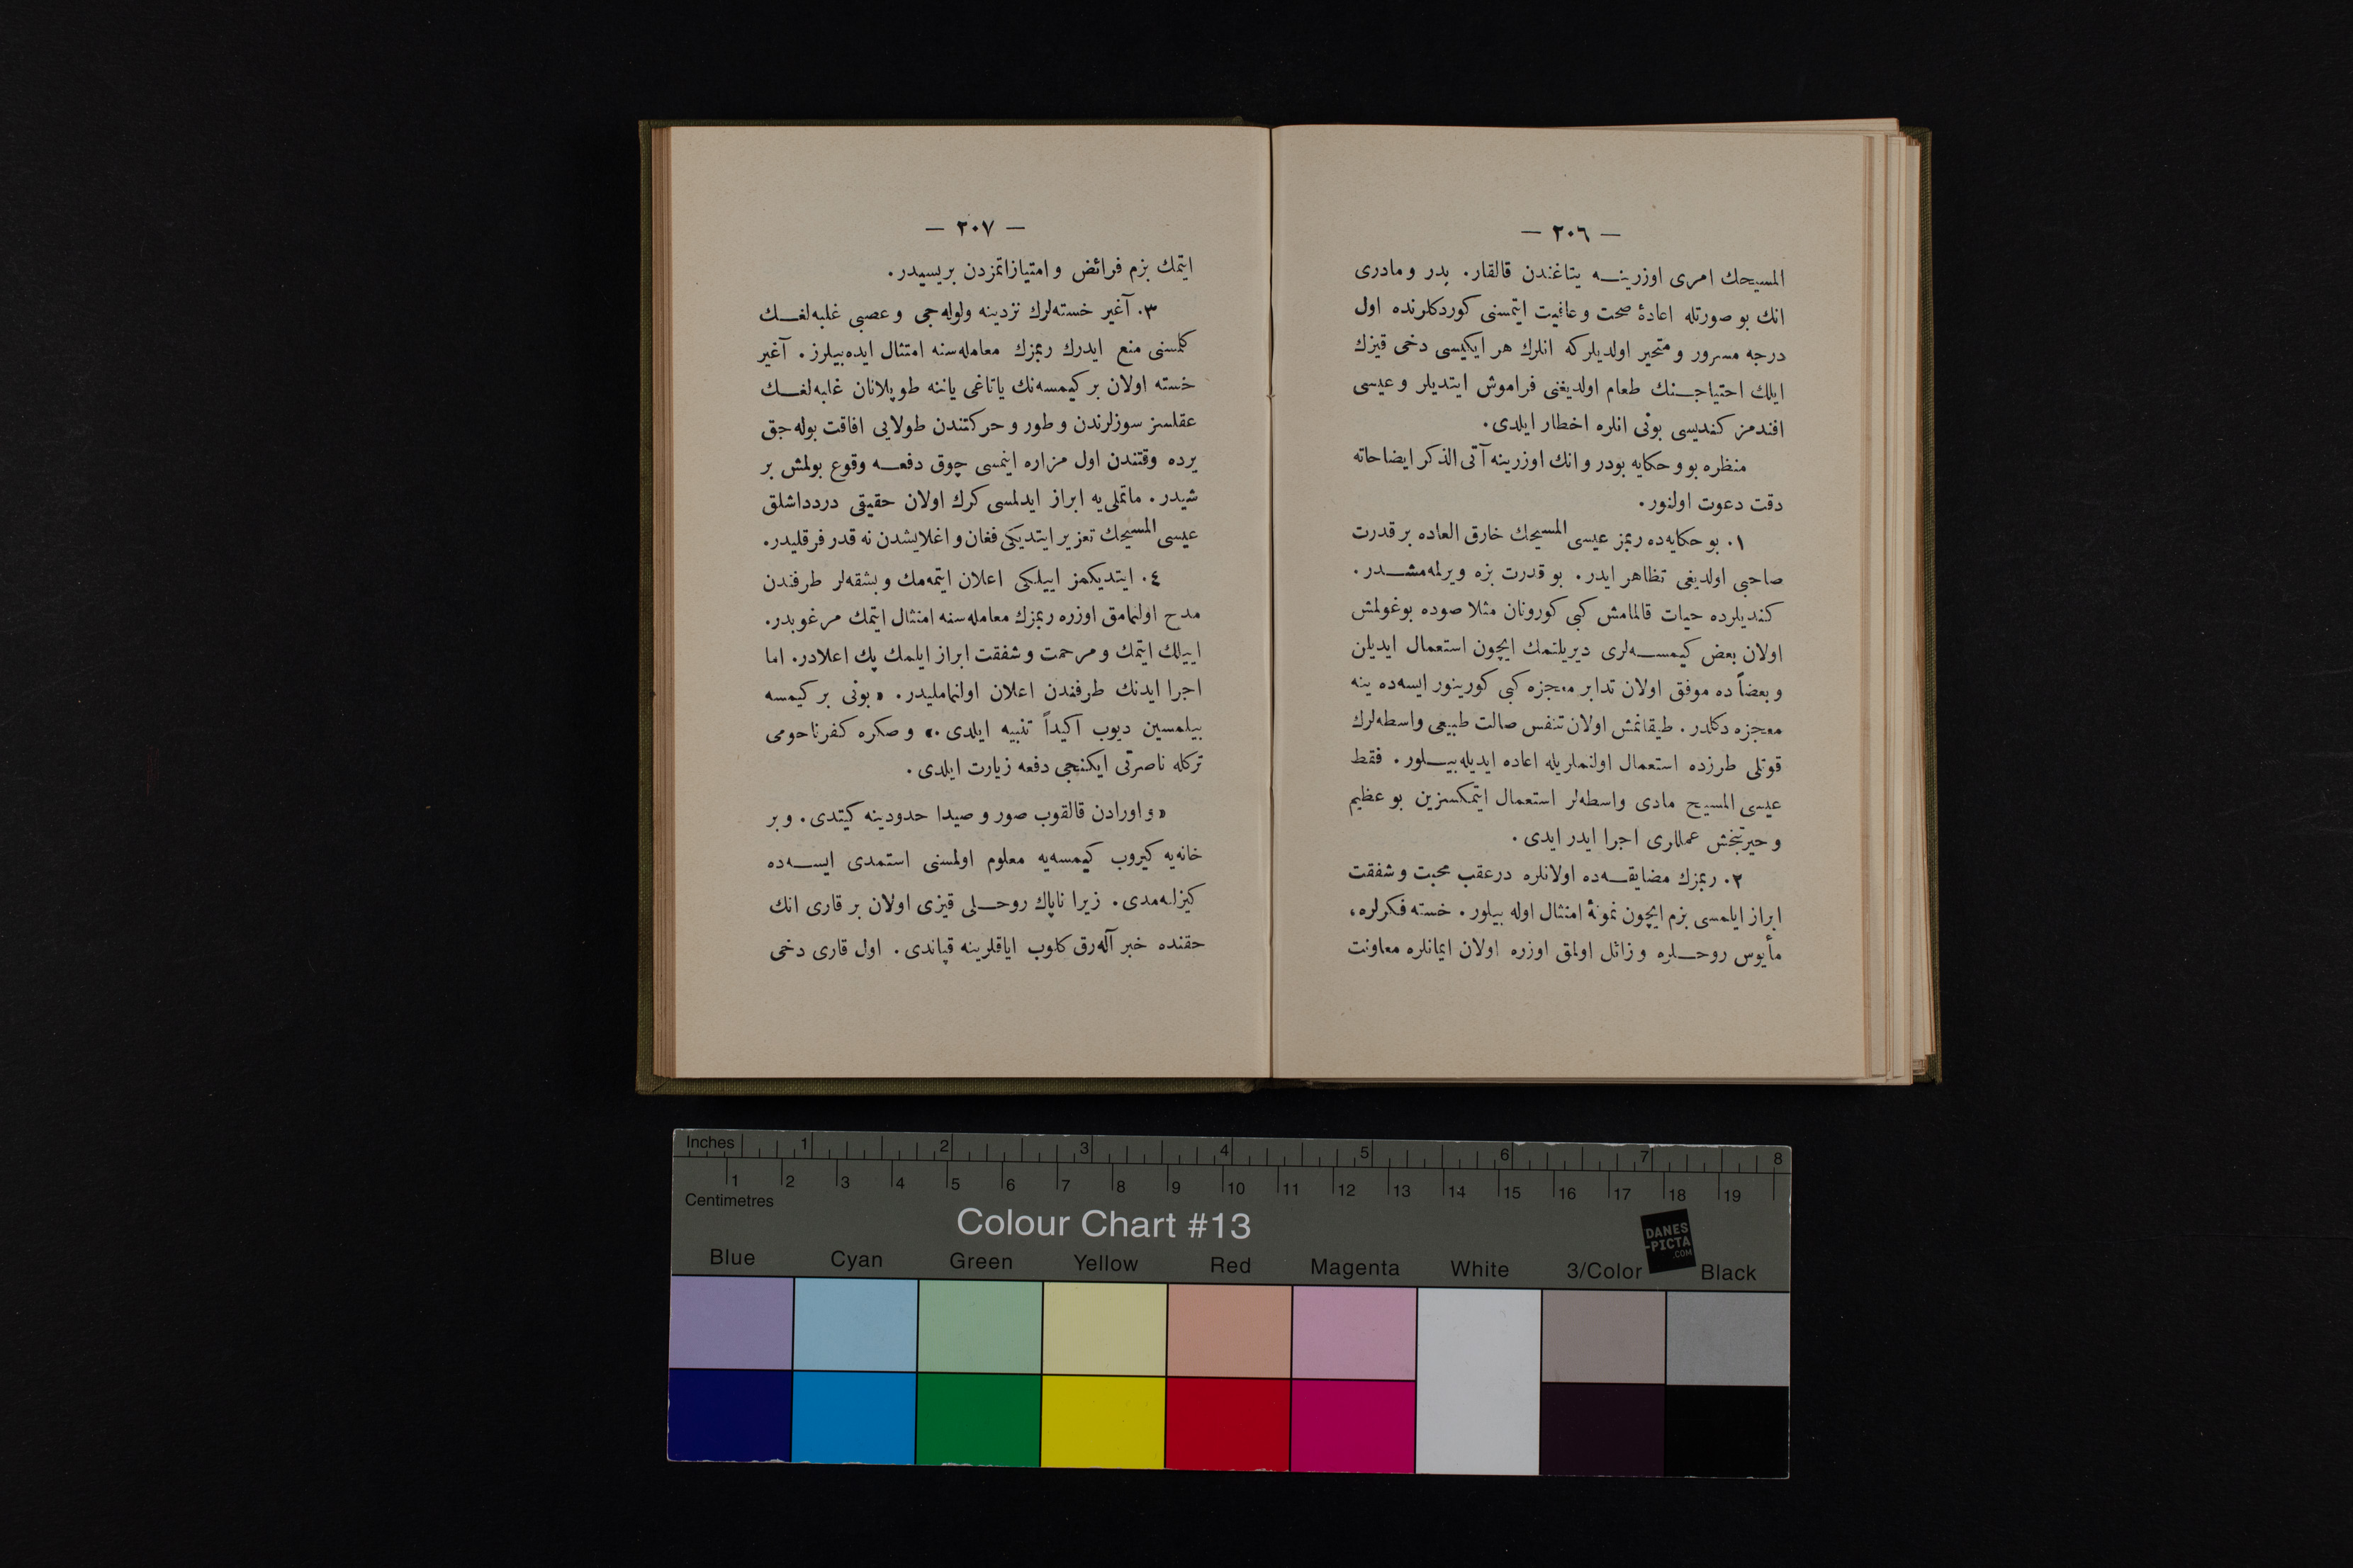 — ٢٠٦ —
المسيحك امرى اوزرينه يتاغندن قالقار. پدر و مادرى
انك بو صورتله اعادهٔ صحت و عافيت ايتمسنى كوردكلرنده اول
درجه مسرور و متحير اولديلركه انلرك هر ايكيسى دخى قيزك
ايلك احتياجنك طعام اولديغنى فراموش ايتديلر و عيسى
افندمز كنديسى بونى انلره اخطار ايلدى.
منظره بو و حكايه بودر و انك اوزرينه آتى الذكر ايضاحاته
دقت دعوت اولنور.
١. بو حكايه‌ده ربمز عيسى المسيحك خارق العاده بر قدرت
صاحبى اولديغى تظاهر ايدر. بو قدرت بزه ويرلمه‌مشدر.
كنديلرده حيات قالمامش كبى كورونان مثلا صوده بوغولمش
اولان بعض كيمسه‌لرى ديريلتمك ايچون استعمال ايديلن
و بعضاً ده موفق اولان تدابر معجزه كبى كورينور ايسه‌ده ينه
معجزه دكلدر. طيقانمش اولان تنفس صالت طبيعى واسطه‌لرك
قوتلى طرزده استعمال اولنملريله اعاده ايديله‌بيلور. فقط
عيسى المسيح مادى واسطه‌لر استعمال ايتمكسزين بو عظيم
و حيرتبخش عمللرى اجرا ايدر ايدى.
٢. ربمزك مضايقه‌ده اولانلره درعقب محبت و شفقت
ابراز ايلمسى بزم ايچون نمونهٔ امتثال اوله بيلور. خسته فكرلره،
مأيوس روحلره و زائل اولمق اوزره اولان ايمانلره معاونت
— ٢٠٧ —
ايتمك بزم فرائض و امتيازاتمزدن بريسيدر.
٣. آغير خسته‌لرك نزدينه ولوله‌جى و عصبى غلبه‌لغك
كلمسنى منع ايدرك ربمزك معامله‌سنه امتثال ايده‌بيلرز. آغير
خسته اولان بر كيمسه‌نك ياتاغى ياننه طوپلانان غلبه‌لغك
عقلسز سوزلرندن و طور و حركتندن طولايى افاقت بوله‌جق
يرده وقتندن اول مزاره اينمسى چوق دفعه وقوع بولمش بر
شيدر. ماتملى‌يه ابراز ايدلمسى كرك اولان حقيقى دردداشلق
عيسى المسيحك تعزير ايتديكى فغان و اغلايشدن نه قدر فرقليدر.
٤. ايتديكمز اييلكى اعلان ايتمه‌مك و بشقه‌لر طرفندن
مدح اولنمامق اوزره ربمزك معامله‌سنه امتثال ايتمك مرغوبدر.
اييلك ايتمك و مرحمت و شفقت ابراز ايلمك پك اعلادر. اما
اجرا ايدنك طرفندن اعلان اولنماملیدر. «بونى بر كيمسه
بيلمسين ديوب اكيداً تنبيه ايلدى.» و صكره كفرناحومى
تركله ناصرتى ايكنجى دفعه زيارت ايلدى.
«و اورادن قالقوب صور و صيدا حدودينه كيتدى. و بر
خانه‌يه كيروب كيمسه‌يه معلوم اولمسنى استمدى ايسه‌ده
كيزلنه‌مدى. زيرا ناپاك روحلى قيزى اولان بر قارى انك
حقنده خبر آله‌رق كلوب اياقلرينه قپاندى. اول قارى دخى
Inches 1 2 3 4 5 6 7 8
1 2 3 4 5 6 7 8 9 10 11 12 13 14 15 16 17 18 19
Centimetres
Colour Chart #13
DANES
-PICTA
.COM
Blue Cyan Green Yellow Red Magenta White 3/Color Black